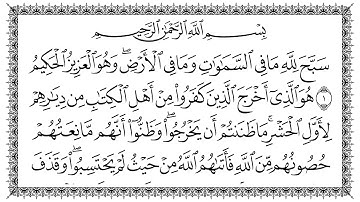 بِسْمِ ٱللَّهِ ٱلرَّحْمَٰنِ ٱلرَّحِيمِ
سَبَّحَ لِلَّهِ مَا فِى ٱلسَّمَٰوَٰتِ وَمَا فِى ٱلْأَرْضِ ۖ وَهُوَ ٱلْعَزِيزُ ٱلْحَكِيمُ
١ هُوَ ٱلَّذِىٓ أَخْرَجَ ٱلَّذِينَ كَفَرُوا۟ مِنْ أَهْلِ ٱلْكِتَٰبِ مِن دِيَٰرِهِمْ
لِأَوَّلِ ٱلْحَشْرِ ۚ مَا ظَنَنتُمْ أَن يَخْرُجُوا۟ ۖ وَظَنُّوٓا۟ أَنَّهُم مَّانِعَتُهُمْ
حُصُونُهُم مِّنَ ٱللَّهِ فَأَتَىٰهُمُ ٱللَّهُ مِنْ حَيْثُ لَمْ يَحْتَسِبُوا۟ ۖ وَقَذَفَ